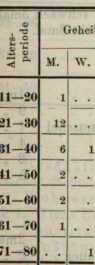 Alters-
periode
Geheil
M. W.
11—20 1 . .
21—30 12 . .
31—40 6 1
41—50 2 . .
51—60 2 .
61—70 1 . .
71—80 . . 1